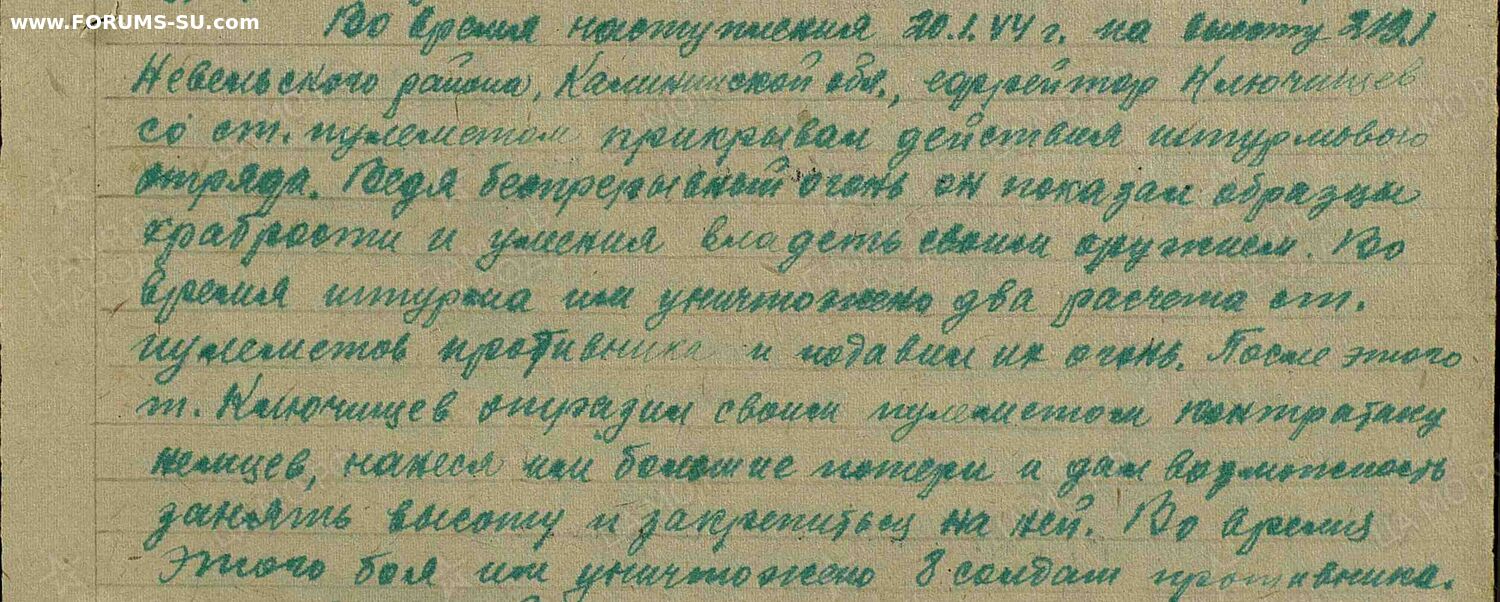 www.FORUMS-SU.com
Во время наступления 20.1.44 г. на высоту 219.1
Невельского района, Калининской обл., ефрейтор Ключищев
со ст. пулеметом прикрывал действия штурмового
отряда. Ведя беспрерывный огонь он показал образцы
храбрости и умения владеть своим оружием. Во
время штурма им уничтожено два расчета ст.
пулеметов противника и подавил их огонь. После этого
т. Ключищев отразил своим пулеметом контратаку
немцев, нанеся им большие потери и дал возможность
занять высоту и закрепиться на ней. Во время
этого боя им уничтожено 8 солдат противника.